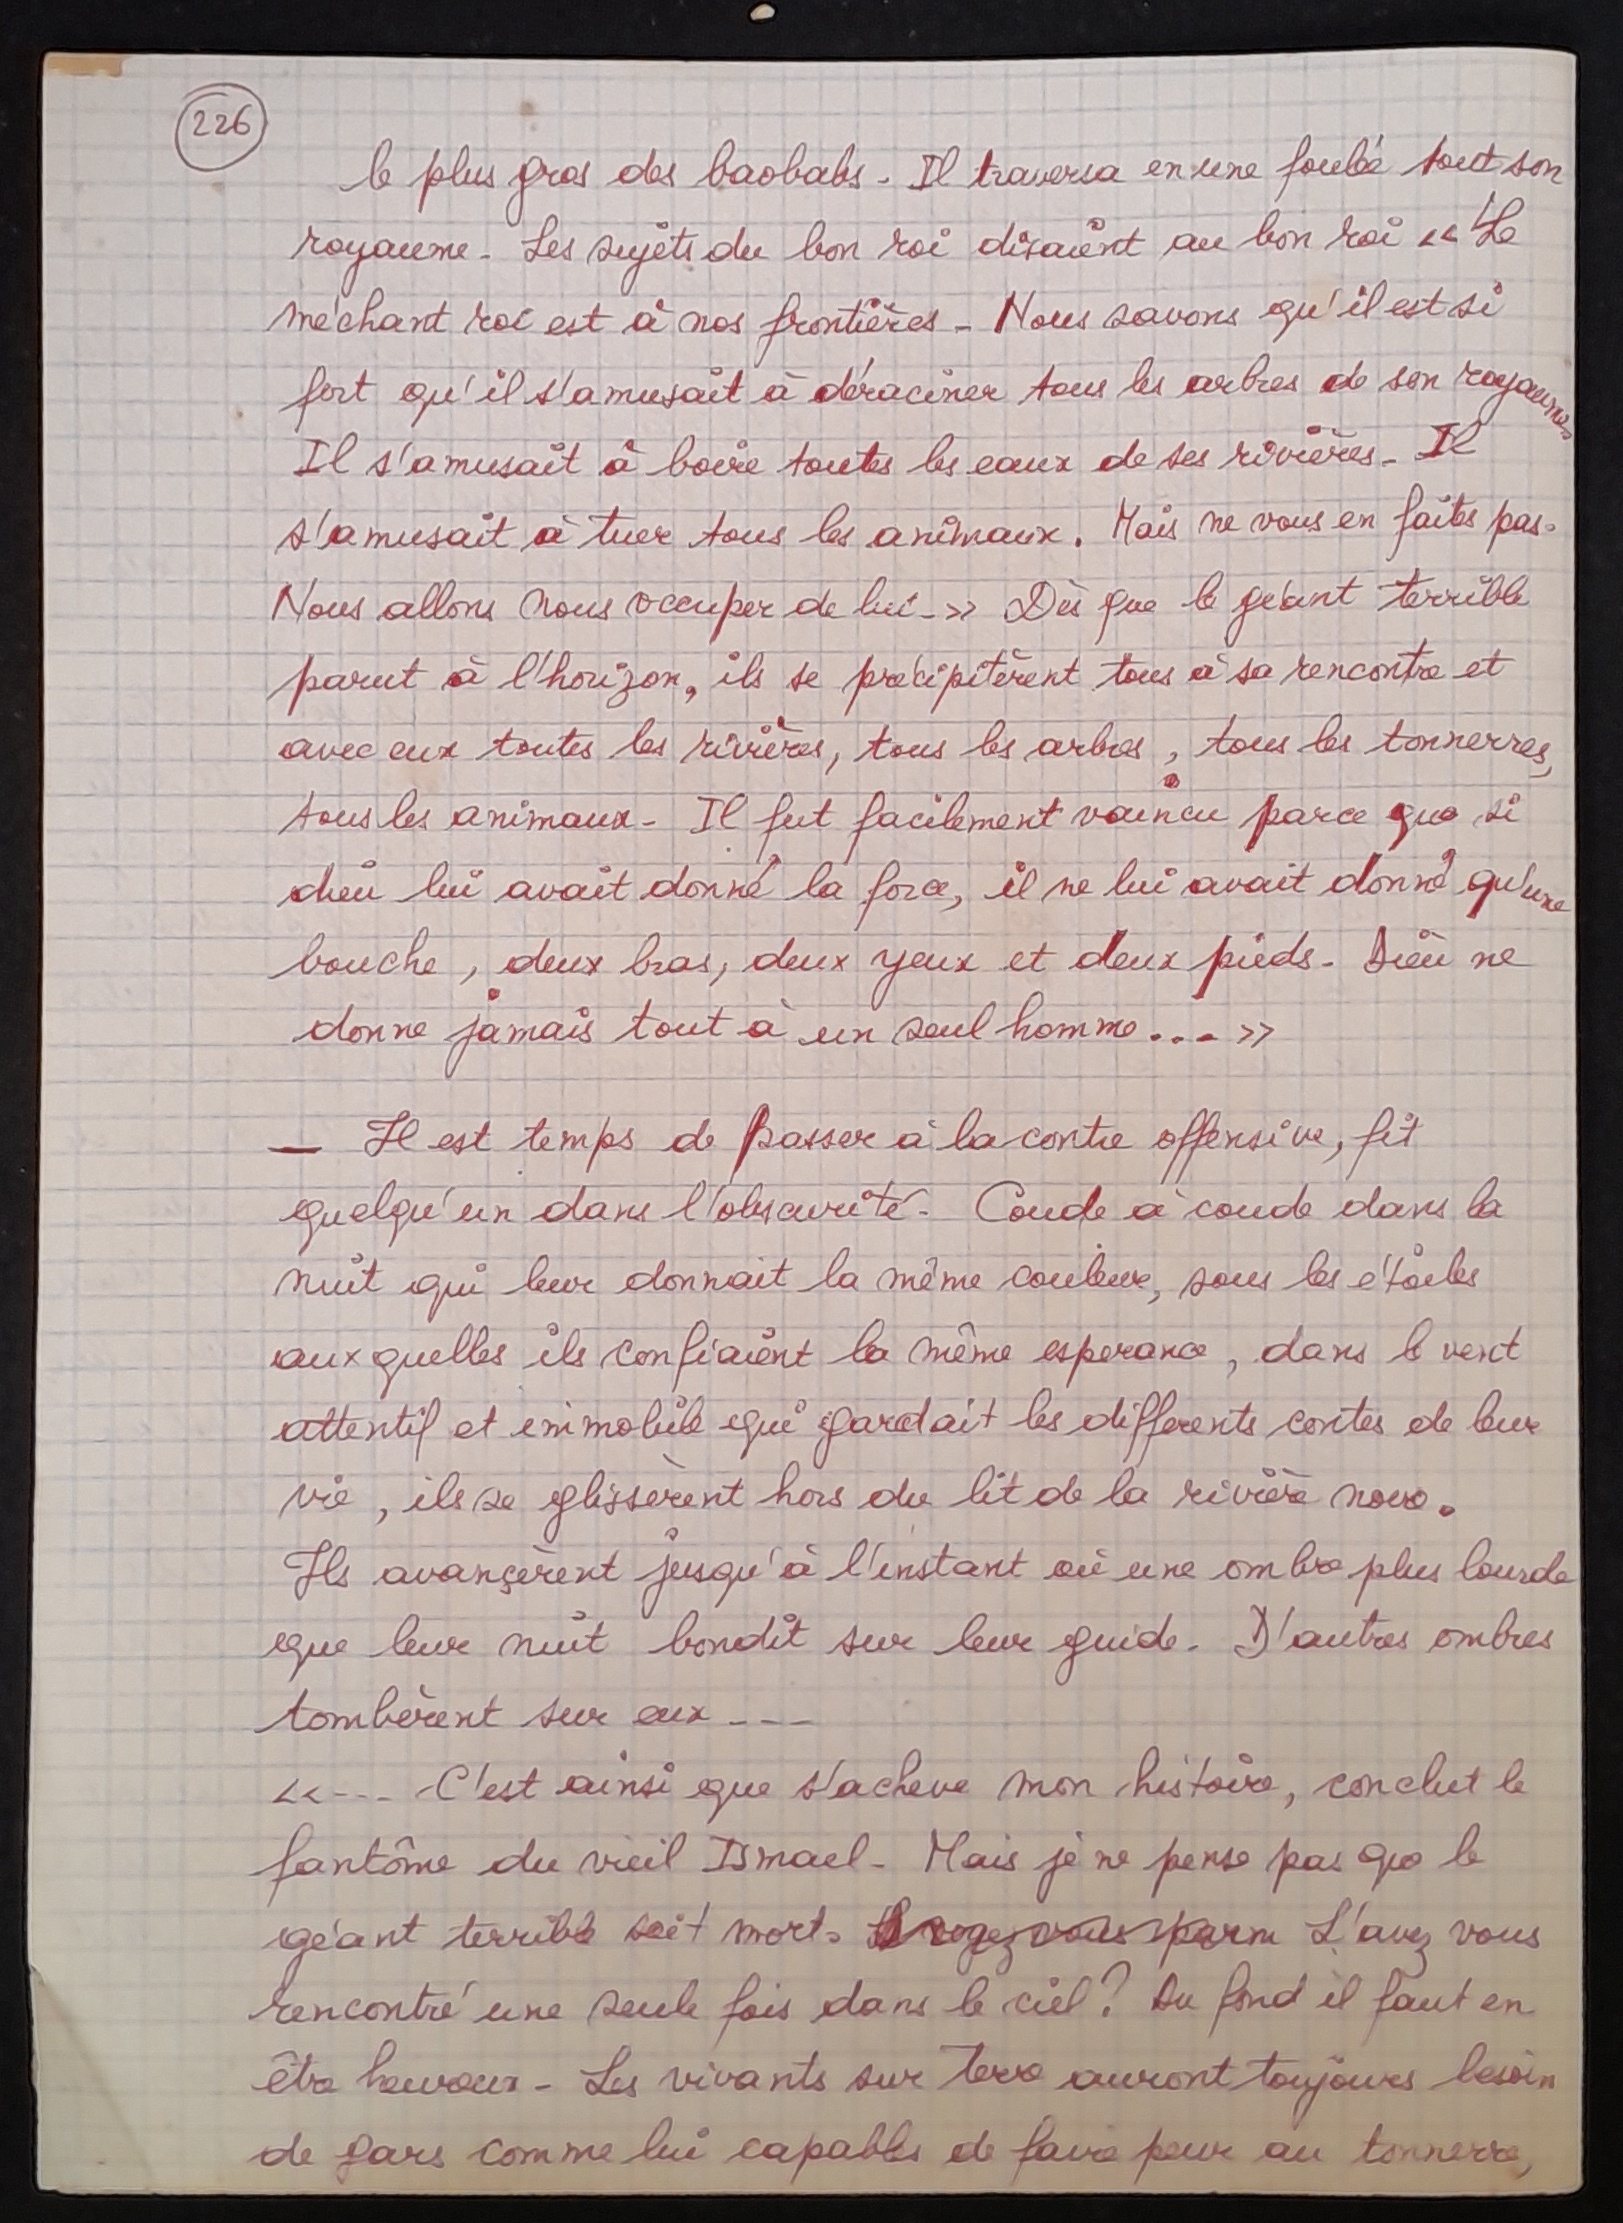 226
le plus gros des baobabs. Il traversa en une foulée tout son
royaume. Les sujets du bon roi disaient au bon roi « Le
méchant roi est à nos frontières. Nous savons qu'il est si
fort qu'il s'amusait à déraciner tous les arbres de son royaume.
Il s'amusait à boire toutes les eaux de ses rivières. Il
s'amusait à tuer tous les animaux. Mais ne vous en faites pas.
Nous allons nous occuper de lui. » Dès que le géant terrible
parut à l'horizon, ils se précipitèrent tous à sa rencontre et
avec eux toutes les rivières, tous les arbres, tous les tonnerres,
tous les animaux. Il fut facilement vaincu parce que si
dieu lui avait donné la force, il ne lui avait donné qu'une
bouche, deux bras, deux yeux et deux pieds. Dieu ne
donne jamais tout à un seul homme... »
— Il est temps de passer à la contre offensive, fit
quelqu'un dans l'obscurité. Coude à coude dans la
nuit qui leur donnait la même couleur, sous les étoiles
auxquelles ils confiaient la même esperance, dans le vent
attentif et immobile qui gardait les differents contes de leur
vie, ils se glissèrent hors du lit de la rivière noire.
Ils avançèrent jusqu'à l'instant où une ombre plus lourde
que leur nuit bondit sur leur guide. D'autres ombres
tombèrent sur eux ...
«... C'est ainsi que s'acheve mon histoire, conclut le
fantôme du vieil Ismael. Mais je ne pense pas que le
géant terrible soit mort. L'avez vous
rencontré une seule fois dans le ciel ? Au fond il faut en
être heureux. Les vivants sur Terre auront toujours besoin
de gars comme lui capables de faire peur au tonnerre,